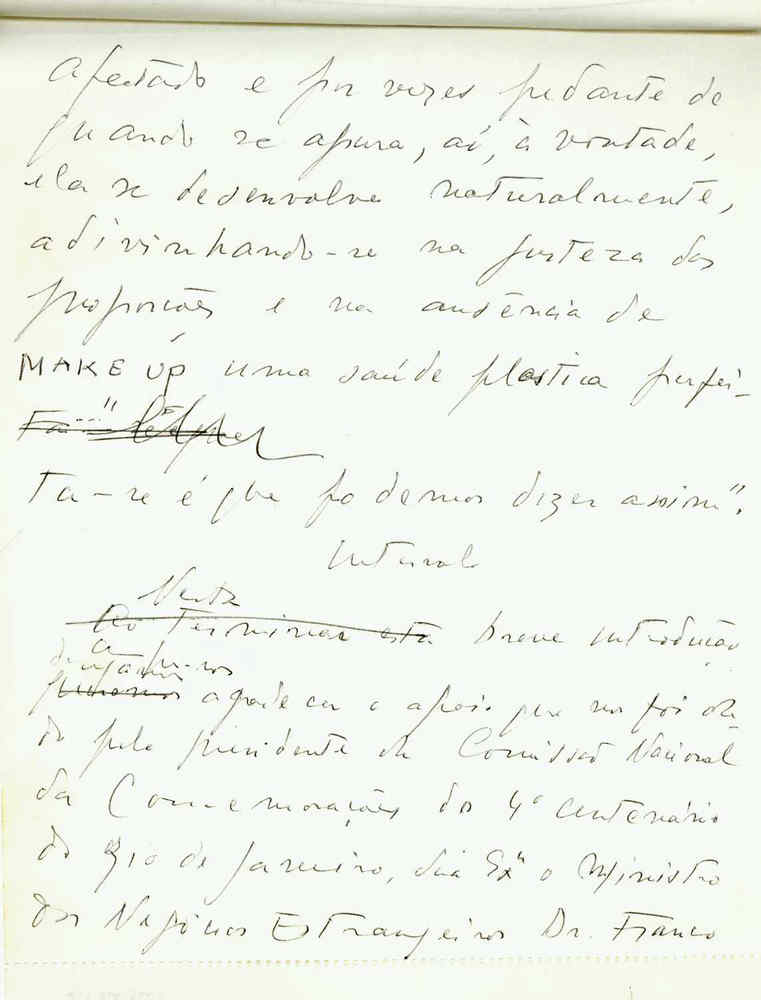 afectado e por vezes pedante de
quando se apura, aí, à vontade,
ela se desenvolve naturalmente,
adivinhando-se na justeza das
proporções e na ausência de
MAKE UP uma saúde plastica perfei-
Ta..."
ta-se é que podemos dizer assim".
Nesta
Ao terminar esta breve introdução
queremos agradecer o apoio que nos foi da-
do pelo presidente da Comissão Nacional
das Comemorações do 4º centenário
do Rio de Janeiro, Sua Exª o Ministro
dos Negócios Estrangeiros Dr. Franco